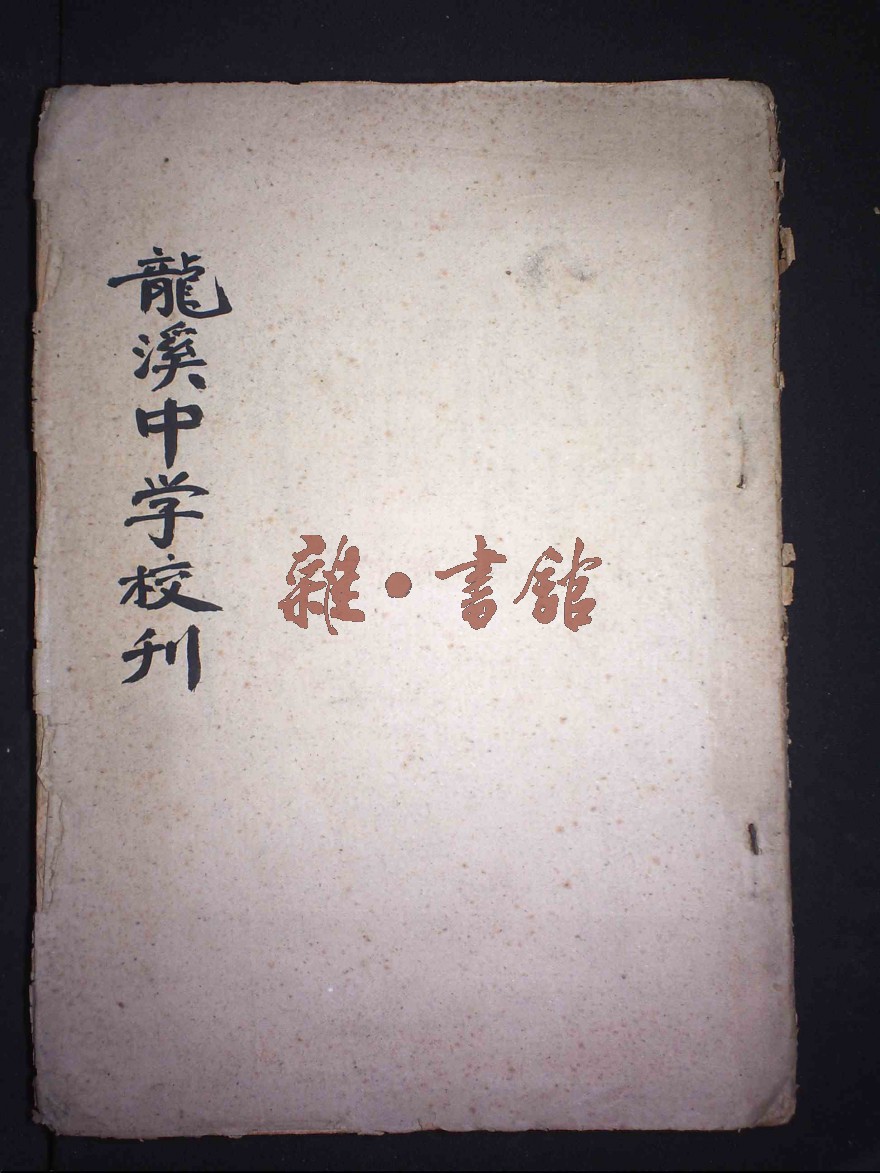 龍溪中学校刊
雜·書館